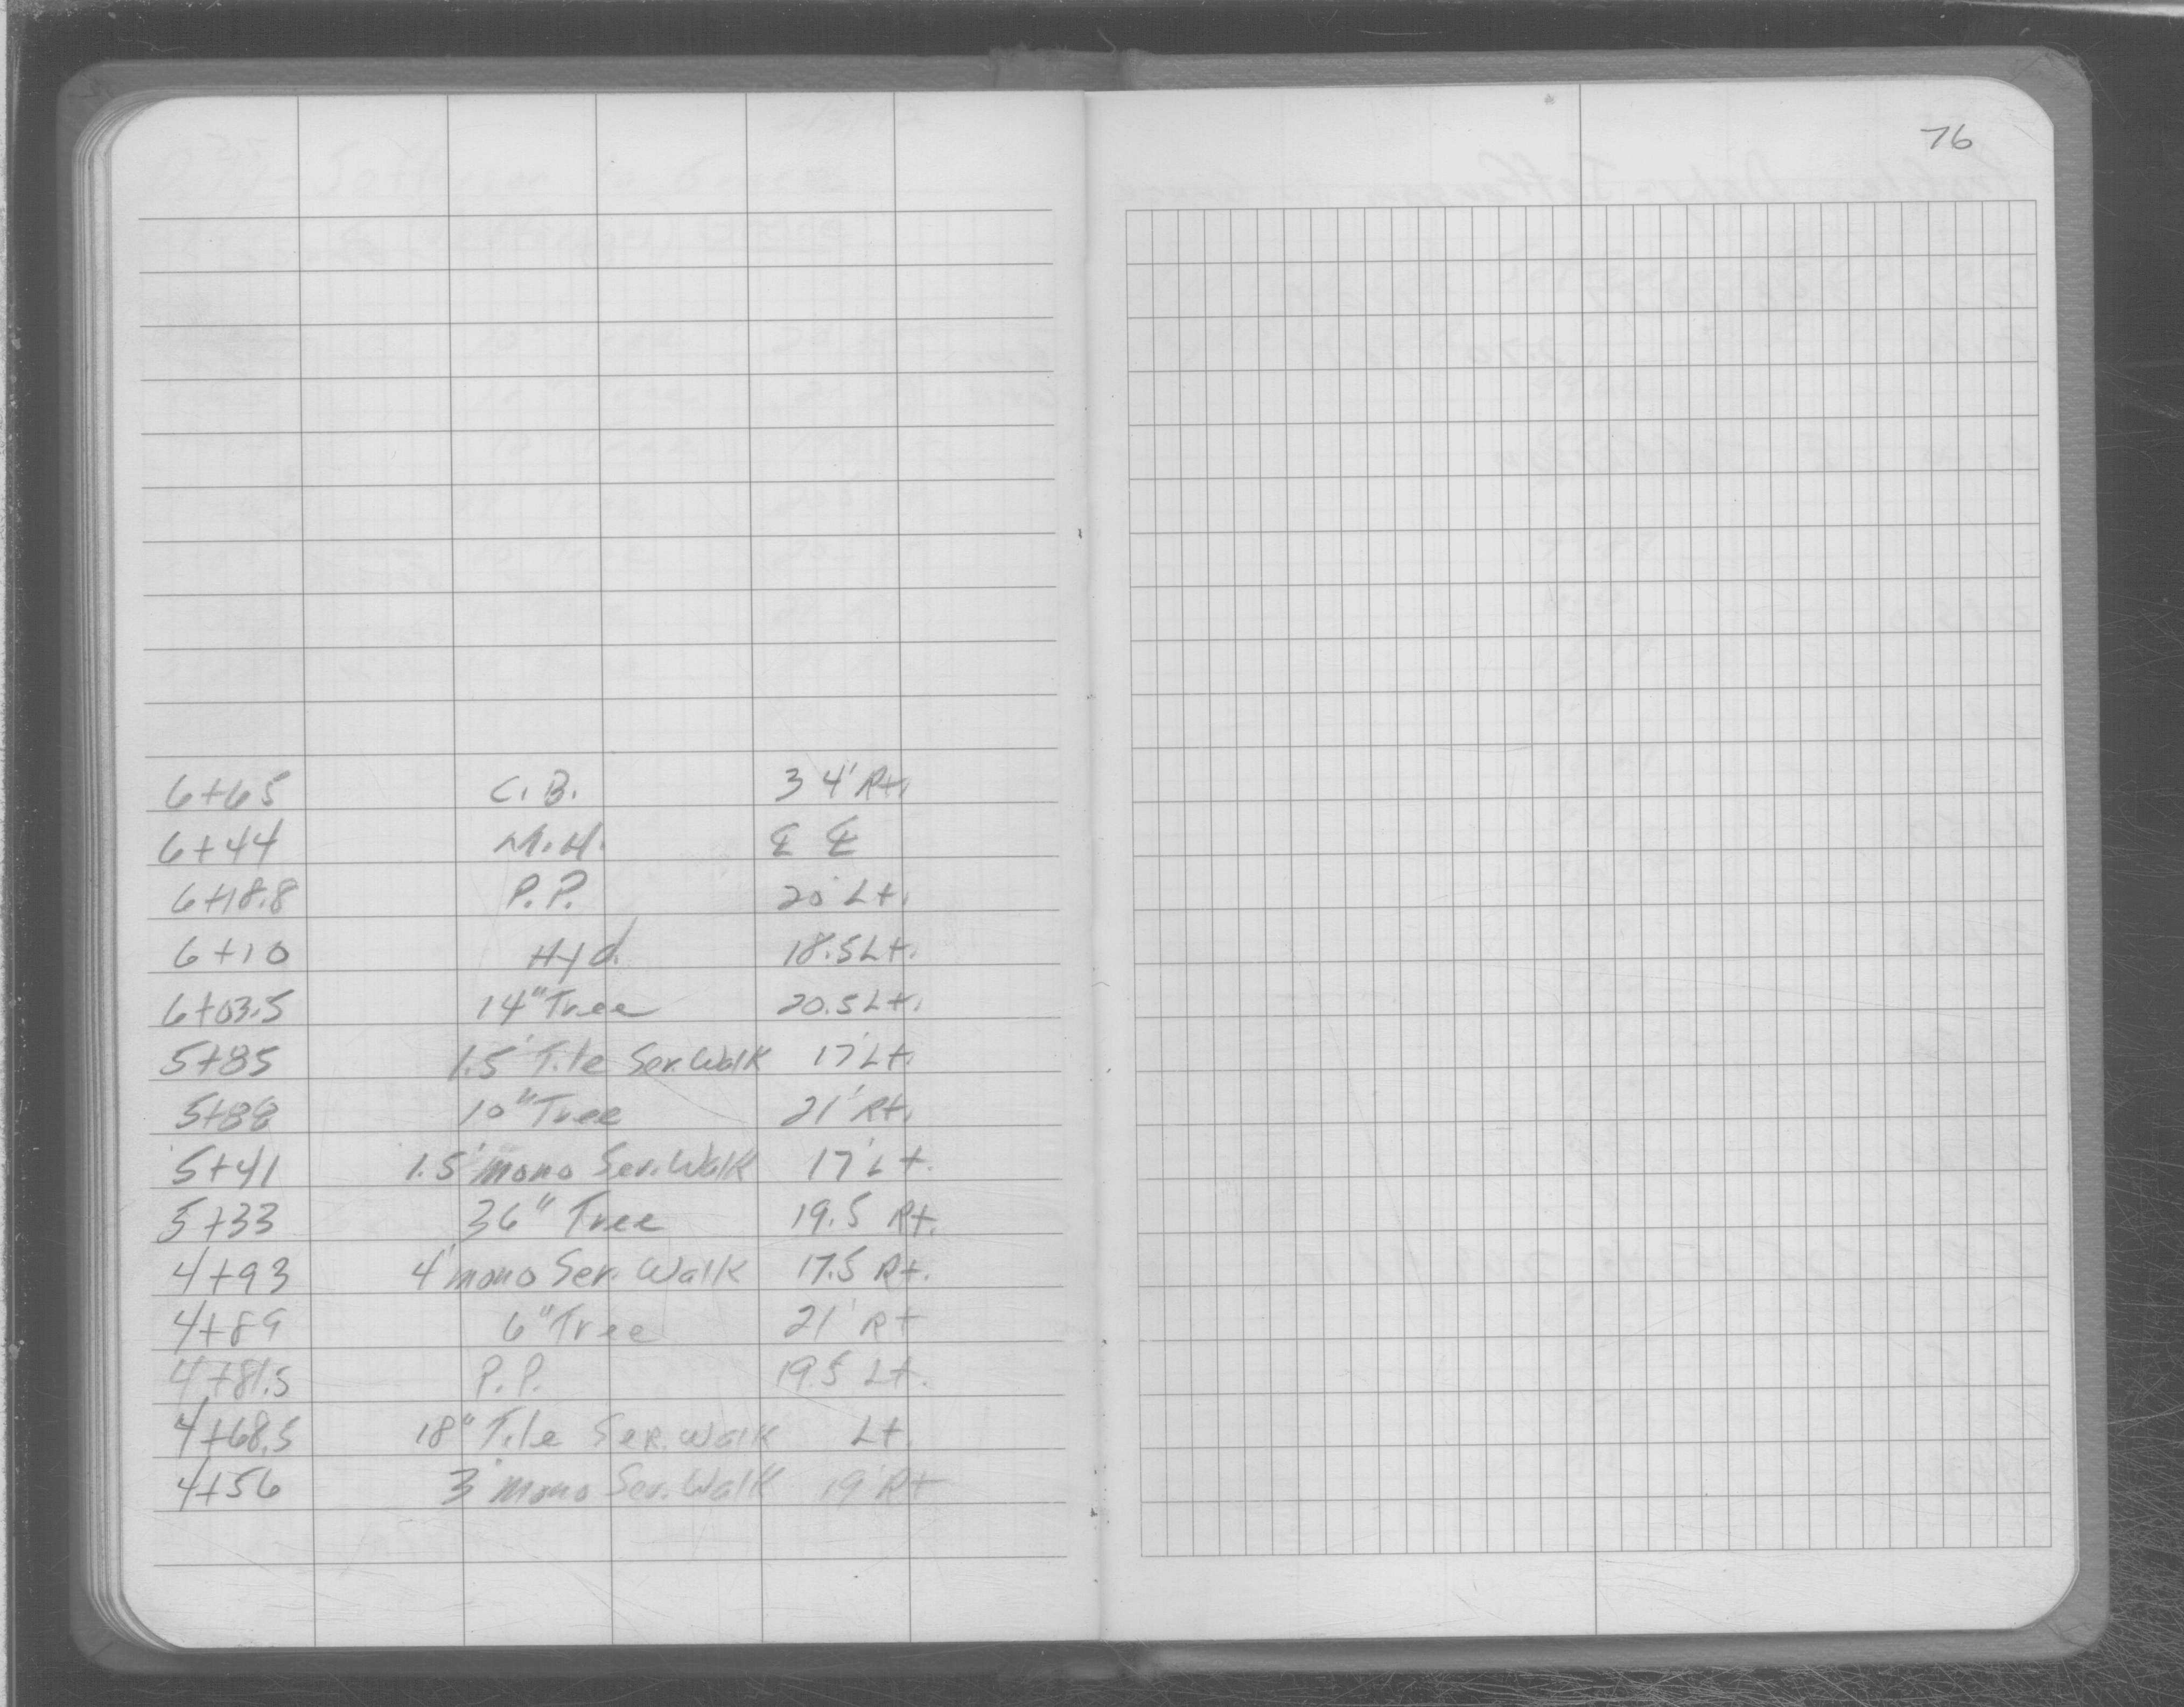 76
6+65 C.B. 34' Rt.
6+44 M.H. ℄ ℄
6+18.8 P.P. 20' Lt.
6+10 Hyd. 18.5 Lt.
6+03.5 14" Tree 20.5 Lt.
5+85 1.5' Tile Ser. Walk 17' Lt.
5+88 10" Tree 21' Rt.
5+41 1.5' mono Ser. Walk 17' Lt.
5+33 36" Tree 19.5 Rt.
4+93 4' mono Ser. Walk 17.5 Rt.
4+89 6" Tree 21' Rt
4+81.5 P.P. 19.5 Lt.
4+68.5 18" Tile Ser. Walk Lt.
4+56 3' mono Ser. Walk 19' Rt